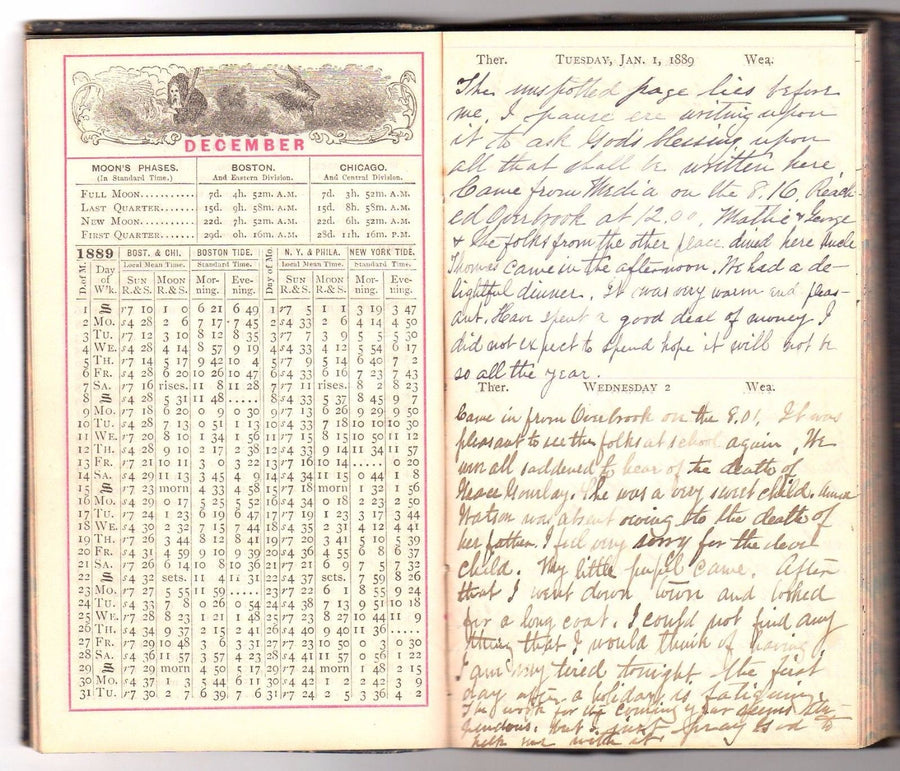 DECEMBER
MOON'S PHASES. BOSTON. CHICAGO.
(In Standard Time.) And Eastern Division. And Central Division.
FULL MOON.......... 7d. 4h. 52m. A.M. 7d. 3h. 52m. A.M.
LAST QUARTER....... 15d. 9h. 58m. A.M. 15d. 8h. 58m. A.M.
NEW MOON........... 22d. 7h. 52m. A.M. 22d. 6h. 52m. A.M.
FIRST QUARTER...... 29d. 0h. 16m. A.M. 28d. 11h. 16m. P.M.
1889 BOST. & CHI. BOSTON TIDE. N. Y. & PHILA. NEW YORK TIDE.
Local Mean Time. Standard Time. Local Mean Time. Standard Time.
D. of M. Day of W'k. SUN R.&S. MOON R.&S. Morning. Evening. Day of Mo. SUN R.&S. MOON R.&S. Morning. Evening.
1 S r7 10 1 0 6 21 6 49 1 r7 5 1 1 3 19 3 47
2 Mo. s4 28 2 6 7 17 7 45 2 s4 33 2 6 4 14 4 50
3 Tu. r7 12 3 10 8 12 8 35 3 r7 7 3 9 5 5 5 30
4 We. s4 28 4 14 8 57 9 19 4 s4 33 4 12 5 54 6 17
5 Th. r7 14 5 17 9 42 10 4 5 r7 9 5 14 6 40 7 2
6 Fr. s4 28 6 20 10 26 10 47 6 s4 33 6 16 7 23 7 43
7 Sa. r7 16 rises. 11 8 11 28 7 r7 11 rises. 8 2 8 23
8 S s4 28 5 31 11 48 ..... 8 s4 33 5 37 8 45 9 7
9 Mo. r7 18 6 20 0 9 0 30 9 r7 13 6 26 9 29 9 50
10 Tu. s4 28 7 13 0 51 1 13 10 s4 33 7 18 10 10 10 30
11 We. r7 20 8 10 1 34 1 56 11 r7 15 8 15 10 50 11 12
12 Th. s4 28 9 10 2 17 2 38 12 s4 33 9 14 11 34 11 57
13 Fr. r7 21 10 11 3 0 3 22 13 r7 16 10 14 ..... 0 20
14 Sa. s4 29 11 13 3 45 4 9 14 s4 34 11 15 0 44 1 8
15 S r7 23 morn 4 33 4 58 15 r7 18 morn 1 32 1 56
16 Mo. s4 29 0 17 5 25 5 52 16 s4 34 0 18 2 23 2 50
17 Tu. r7 24 1 23 6 19 6 47 17 r7 19 1 23 3 17 3 44
18 We. s4 30 2 32 7 15 7 44 18 s4 35 2 31 4 12 4 41
19 Th. r7 26 3 44 8 12 8 41 19 r7 20 3 41 5 10 5 39
20 Fr. s4 31 4 59 9 10 9 39 20 s4 36 4 55 6 8 6 37
21 Sa. r7 26 6 14 10 8 10 36 21 r7 21 6 9 7 5 7 32
22 S s4 32 sets. 11 4 11 31 22 s4 37 sets. 7 59 8 26
23 Mo. r7 27 5 55 11 59 ..... 23 r7 22 6 1 8 55 9 24
24 Tu. s4 33 7 8 0 26 0 54 24 s4 38 7 13 9 51 10 18
25 We. r7 28 8 23 1 21 1 48 25 r7 23 8 27 10 44 11 9
26 Th. s4 34 9 37 2 15 2 41 26 s4 40 9 40 11 36 .....
27 Fr. r7 29 10 48 3 6 3 31 27 r7 24 10 50 0 3 0 30
28 Sa. s4 36 11 57 3 57 4 23 28 s4 41 11 57 0 56 1 22
29 S r7 29 morn 4 50 5 17 29 r7 24 morn 1 48 2 15
30 Mo. s4 37 1 3 5 44 6 11 30 s4 42 1 2 2 42 3 9
31 Tu. r7 30 2 7 6 39 7 6 31 r7 24 2 5 3 36 4 2
Ther. TUESDAY, JAN. 1, 1889 Wea.
The unspotted page lies before
me. I pause ere writing upon
it to ask God's blessing upon
all that shall be written here
Came from Media on the 8.16. Reach-
ed at 12.00. Mattie &
& the folks from the other place dined here Uncle
Thomas came in the afternoon. We had a de-
lightful dinner. It was very warm and pleas-
ant. Have spent a good deal of money I
did not expect to spend hope it will not be
so all the year.
Ther. WEDNESDAY 2 Wea.
Came in from on the 8.01. It was
pleasant to see the folks at school again. We
were all saddened to hear of the death of
Grace Gourlay. She was a very sweet child. Anna
Watson was absent owing to the death of
her father. I feel very sorry for the dear
child. My little pupil came. After
that I went down town and looked
for a long coat. I could not find any
thing that I would think of having.
I am very tired tonight the first
day after a holiday is fatiguing
The work for the coming year seems stu-
pendous. but I must pray God to
help me with it.